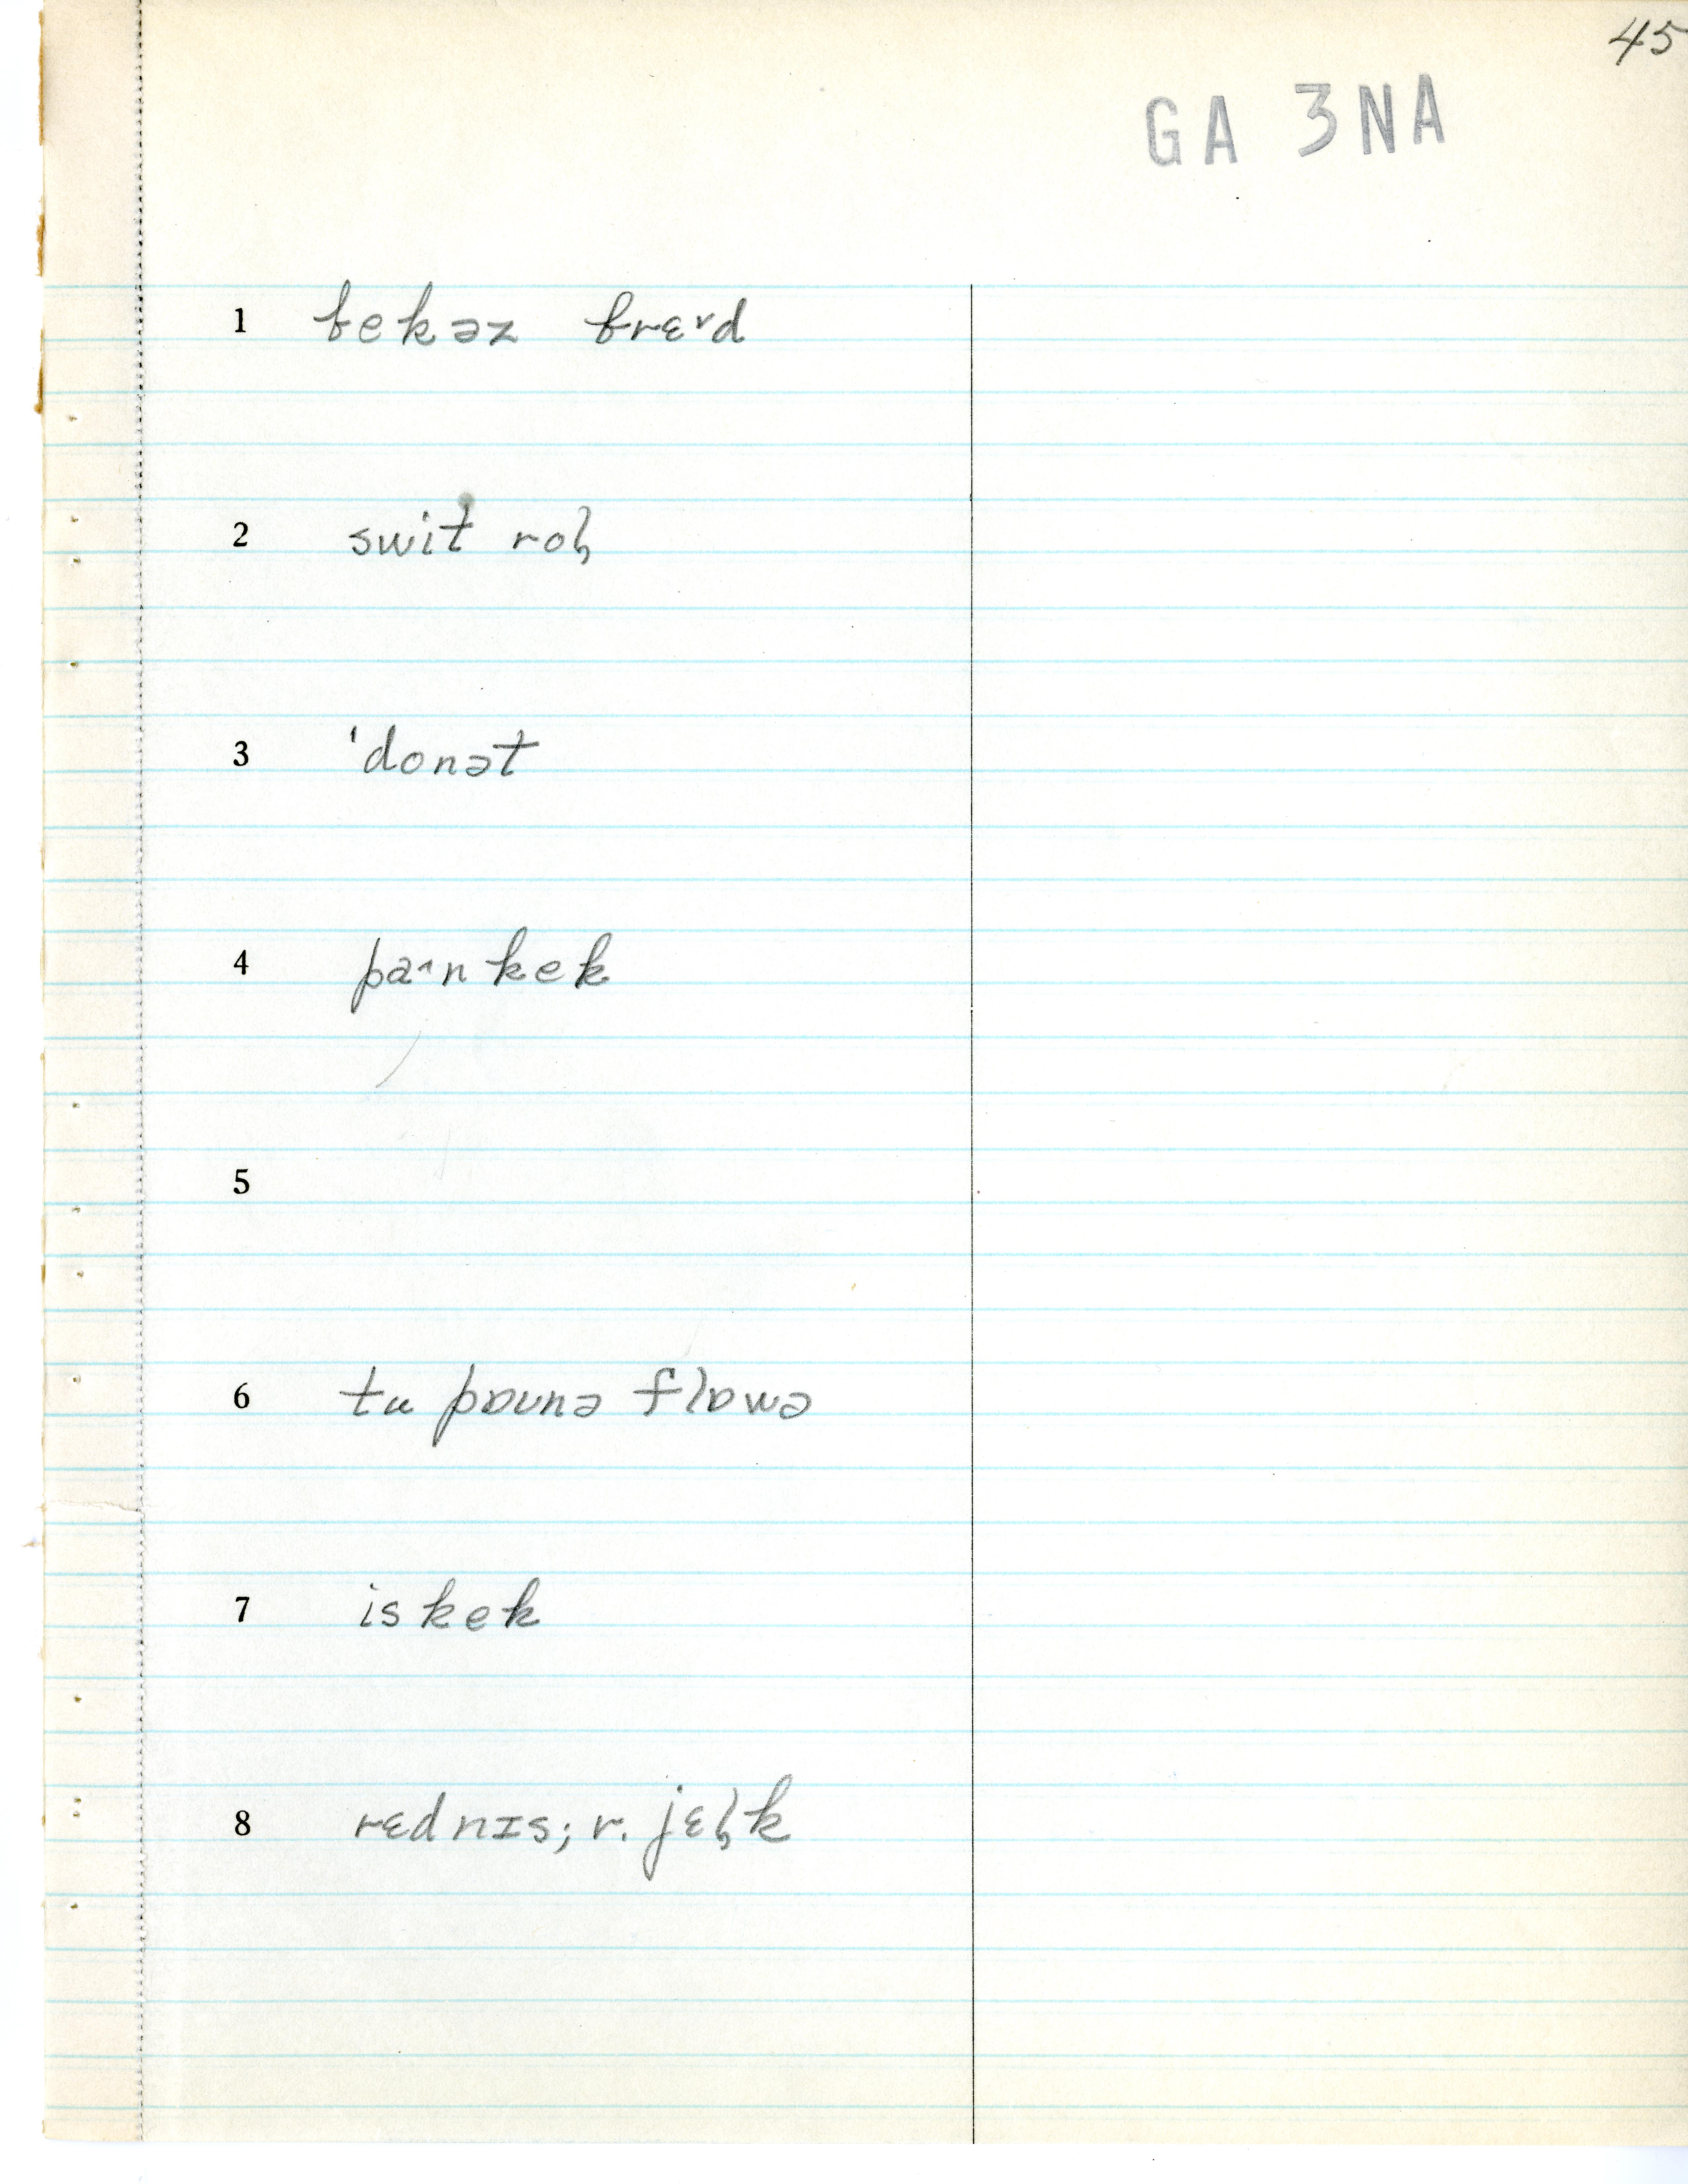 45
GA 3NA
1 bekəz brɛ˅d
2 swit roɫ
3 'donət
4 pa˄n kek
5
6 tu pɒunə flɒwə
7 is kek
8 rɛd nɪs; r. jɛɫk